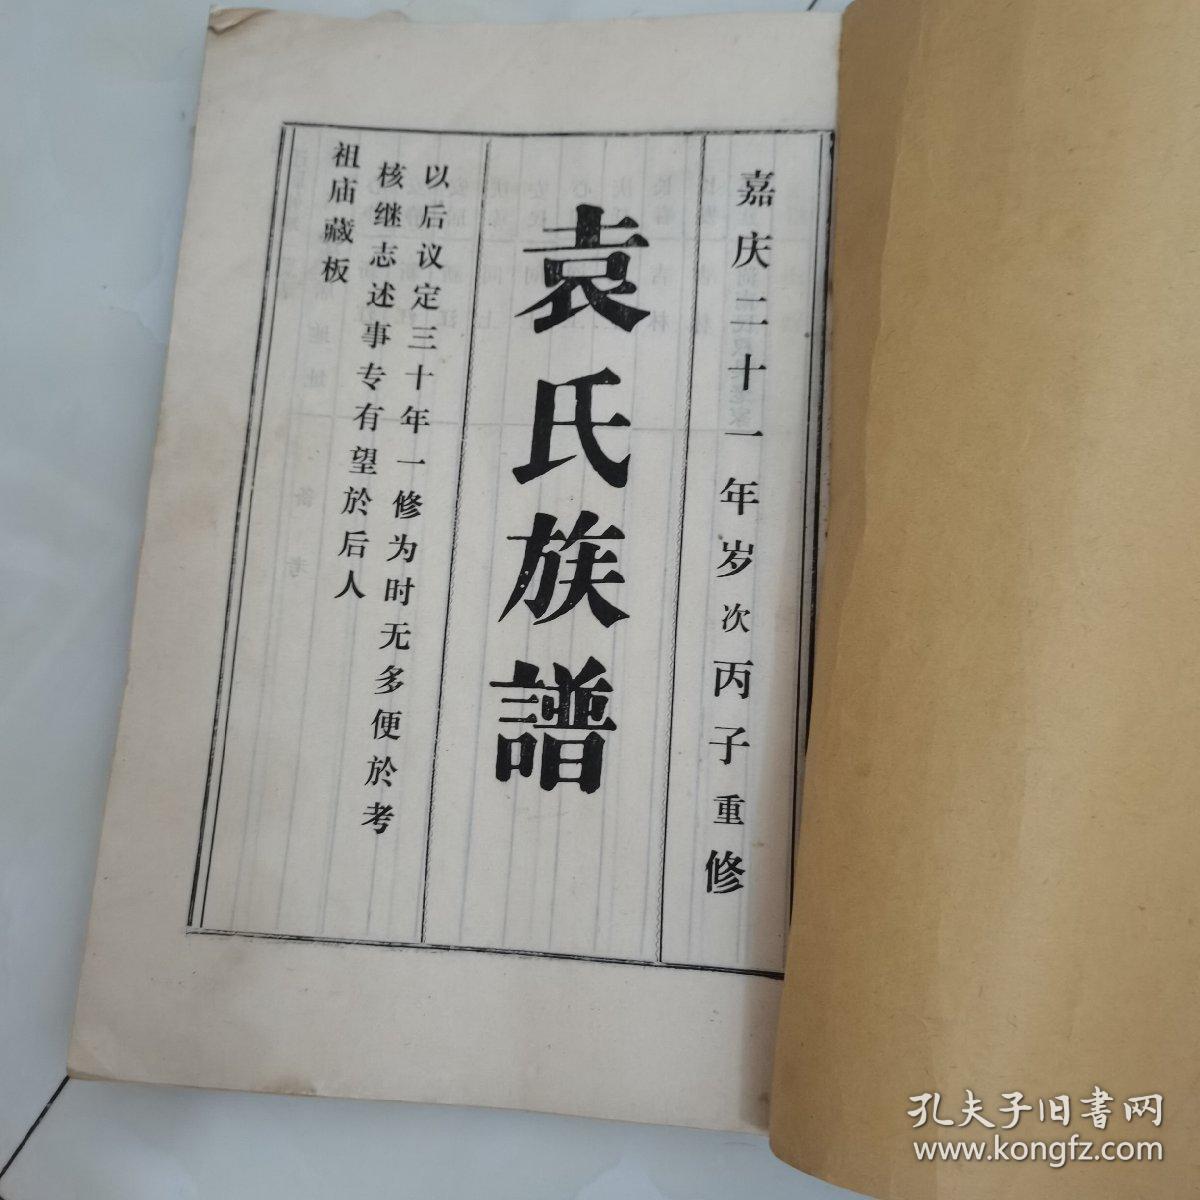 嘉庆二十一年岁次丙子重修
袁氏族譜
以后议定三十年一修为时无多便於考
核继志述事专有望於后人
祖庙藏板
孔夫子旧書网
www.kongfz.com